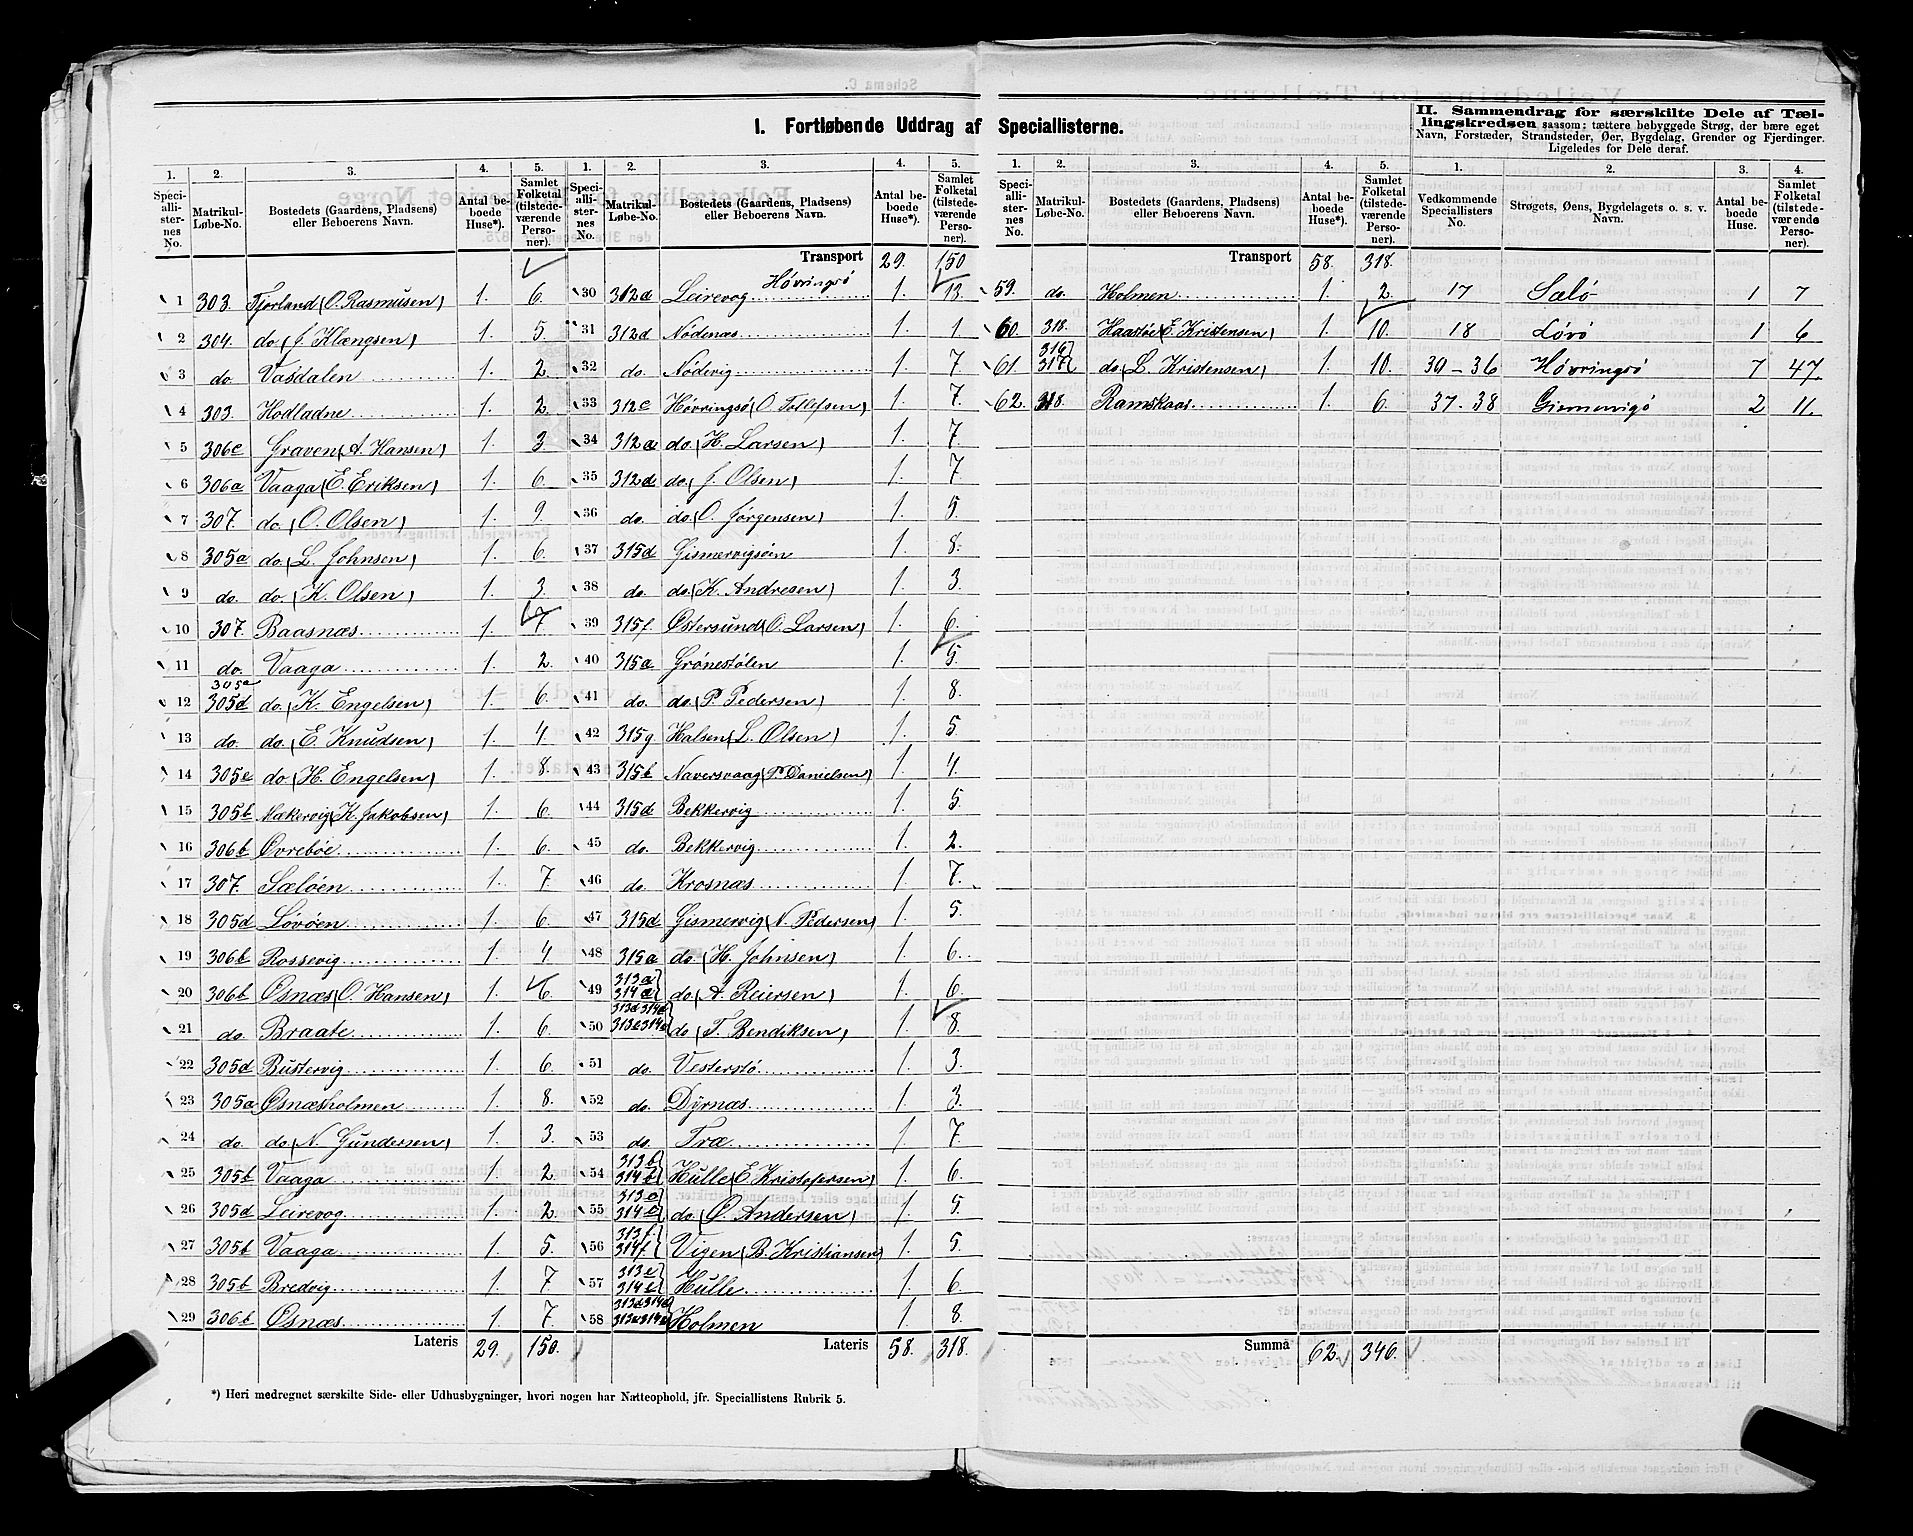 I. Fortløbende Uddrag af Speciallisterne.
II. Sammendrag for særskilte Dele af Tællingskredsen saasom: tættere bebyggede Strøg, der bære eget
Navn, Forstæder, Strandsteder, Øer, Bygdelag, Grender og Fjerdinger.
Ligeledes for Dele deraf.
1. 2. 3. 4. 5.
Speciallisternes No. Matrikul-Løbe-No. Bostedets (Gaardens, Pladsens) eller Beboerens Navn. Antal beboede Huse*). Samlet Folketal (tilstedeværende Personer).
1 303. Tjorland (O. Rasmusen) 1. 6.
2 304. do. (J. Klængsen) 1. 5.
3 do. Vasdalen 1. 2.
4 303. Hodladne 1. 2.
5 306c Graven (A. Hansen) 1. 3.
6 306a Vaaga (E. Eriksen) 1. 6.
7 307. do. (O. Olsen) 1. 9.
8 305a do. (L. Johnsen) 1. 6.
9 do. do. (K. Olsen) 1. 3.
10 307. Baasnæs 1. 7
11 do. Vaaga 1. 2.
12 305a 305d do. (K. Engelsen) 1. 6.
13 do. do. (E. Knudsen) 1. 4
14 305e do. (H. Engelsen) 1. 8.
15 305b Makervig (K. Jakobsen) 1. 6.
16 306b Øvrebøe 1. 6.
17 307. Sæløen 1. 7.
18 305d Løvøen 1. 6.
19 306b Rossevig 1. 4
20 306b Osnæs (O. Hansen) 1. 6.
21 do. Braate 1. 6.
22 305d Bustervig 1. 6
23 305a Osnæsholmen 1. 8.
24 do. do. (N. Gundersen) 1. 3.
25 305b Vaaga 1. 2.
26 305d Leirevog 1. 2.
27 305b Vaaga 1. 5.
28 305b Bredvig 1. 7
29 306b Osnæs 1. 7.
Lateris 29. 150.
1. 2. 3. 4. 5.
Speciallisternes No. Matrikul-Løbe-No. Bostedets (Gaardens, Pladsens) eller Beboerens Navn. Antal beboede Huse*). Samlet Folketal (tilstedeværende Personer).
Transport 29. 150
30 312d Leirevog Høvringsø 1. 13.
31 312d Nødenæs 1. 1
32 do. Nødevig 1. 7
33 312c Høvringsø (O. Tollefsen) 1. 7.
34 312a do. (H. Larsen) 1. 7.
35 312d do. (J. Olsen) 1. 7
36 do. do. (O. Jørgensen) 1. 5.
37 315d Gismervigøin 1. 8.
38 do. do. (K. Andresen) 1. 3.
39 315f. Østersund (O. Larsen) 1. 6.
40 315a Grønestølen 1. 5.
41 do. do. (P. Pedersen) 1. 8.
42 315g Halsen (L. Olsen) 1. 5
43 315b Naversvaag (P. Danielsen) 1. 4.
44 315d Bekkervig 1. 5.
45 do. Bekkervig 1. 2.
46 do. Krosnæs 1. 7.
47 315d Gismervig (N. Pedersen) 1. 5.
48 315a do. (H. Johnsen) 1. 6.
49 313a 314a do. (A. Reiersen) 1. 6.
50 313d 314d 313e 314e do. (T. Bendiksen) 1. 8.
51 do. Vesterstø 1. 3.
52 do. Dyrnæs 1. 3.
53 do. Træ 1 7.
54 313b 314b Hulle (E. Kristofersen) 1. 6.
55 313c 314c do. (O. Andersen) 1. 5.
56 313f. 314f. Vigen (B. Kristiansen) 1. 5.
57 313e 314e Hulle 1. 6
58 313d 314d 313e 314e Holmen 1. 8.
Lateris 58. 318.
1. 2. 3. 4. 5.
Speciallisternes No. Matrikul-Løbe-No. Bostedets (Gaardens, Pladsens) eller Beboerens Navn. Antal beboede Huse*). Samlet Folketal (tilstedeværende Personer).
Transport 58. 318.
59. do. Holmen 1. 2.
60. 318. Haastøe (E. Kristensen) 1. 10.
61. 316 317 do. (L. Kristensen) 1. 10.
62. 318. Ramskaar 1. 6.
Summa 62. 346.
1. 2. 3. 4.
Vedkommende Speciallisters No. Strøgets, Øens, Bygdelagets o. s. v. Navn. Antal beboede Huse. Samlet Folketal (tilstedeværende Personer).
17 Sælø 1 7
18 Løvø 1 6
30-36 Høvringsø 7 47.
37-38 Gismervigø 2 11.
*) Heri medregnet særskilte Side- eller Udhusbygninger, hvori nogen har Natteophold, jfr. Speciallistens Rubrik 5.